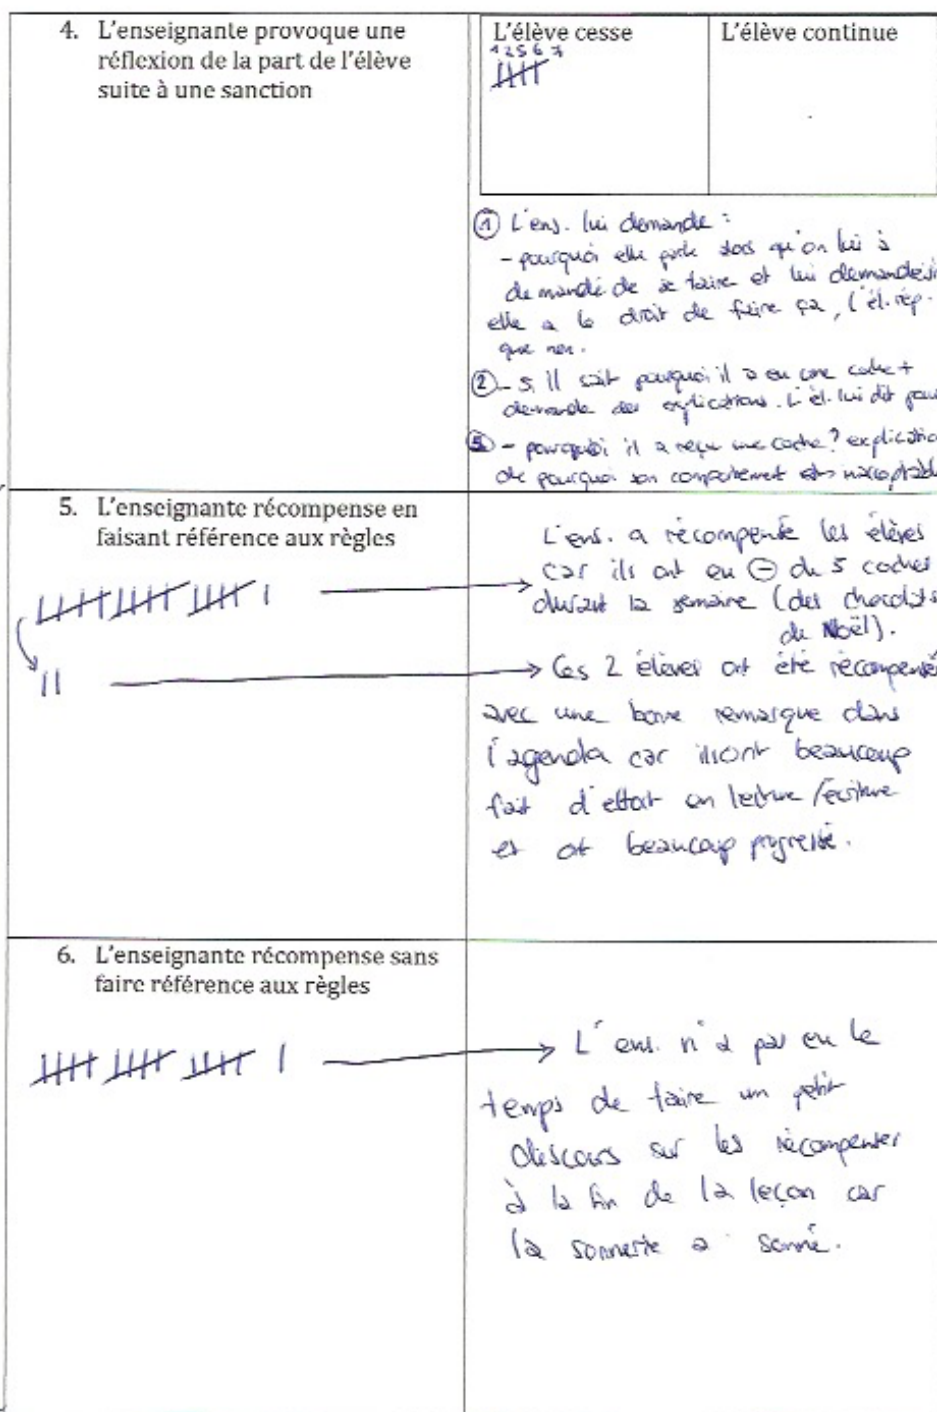 4. L'enseignante provoque une
réflexion de la part de l'élève
suite à une sanction
L'élève cesse
1 2 5 6 7
L'élève continue
① L'ens. lui demande :
- pourquoi elle parle alors qu'on lui à
demandé de se taire et lui demande si
elle a le droit de faire ça, l'él. rép.
que non.
② - s'il sait pourquoi il a eu une coche +
demande des explications. L'él. lui dit
⑤ - pourquoi il a reçu une coche ? explication
de pourquoi son comportement
5. L'enseignante récompense en
faisant référence aux règles
L'ens. a récompensé les élèves
car ils ont eu ⊖ de 5 coches
durant la semaine (des chocolats
de Noël).
Ces 2 élèves ont été récompensés
avec une bonne remarque dans
l'agenda car ils ont beaucoup
fait d'effort en lecture/écriture
et ont beaucoup progressé.
6. L'enseignante récompense sans
faire référence aux règles
L'ens. n'a pas eu le
temps de faire un petit
discours sur les récompenses
à la fin de la leçon car
la sonnerie a sonné.